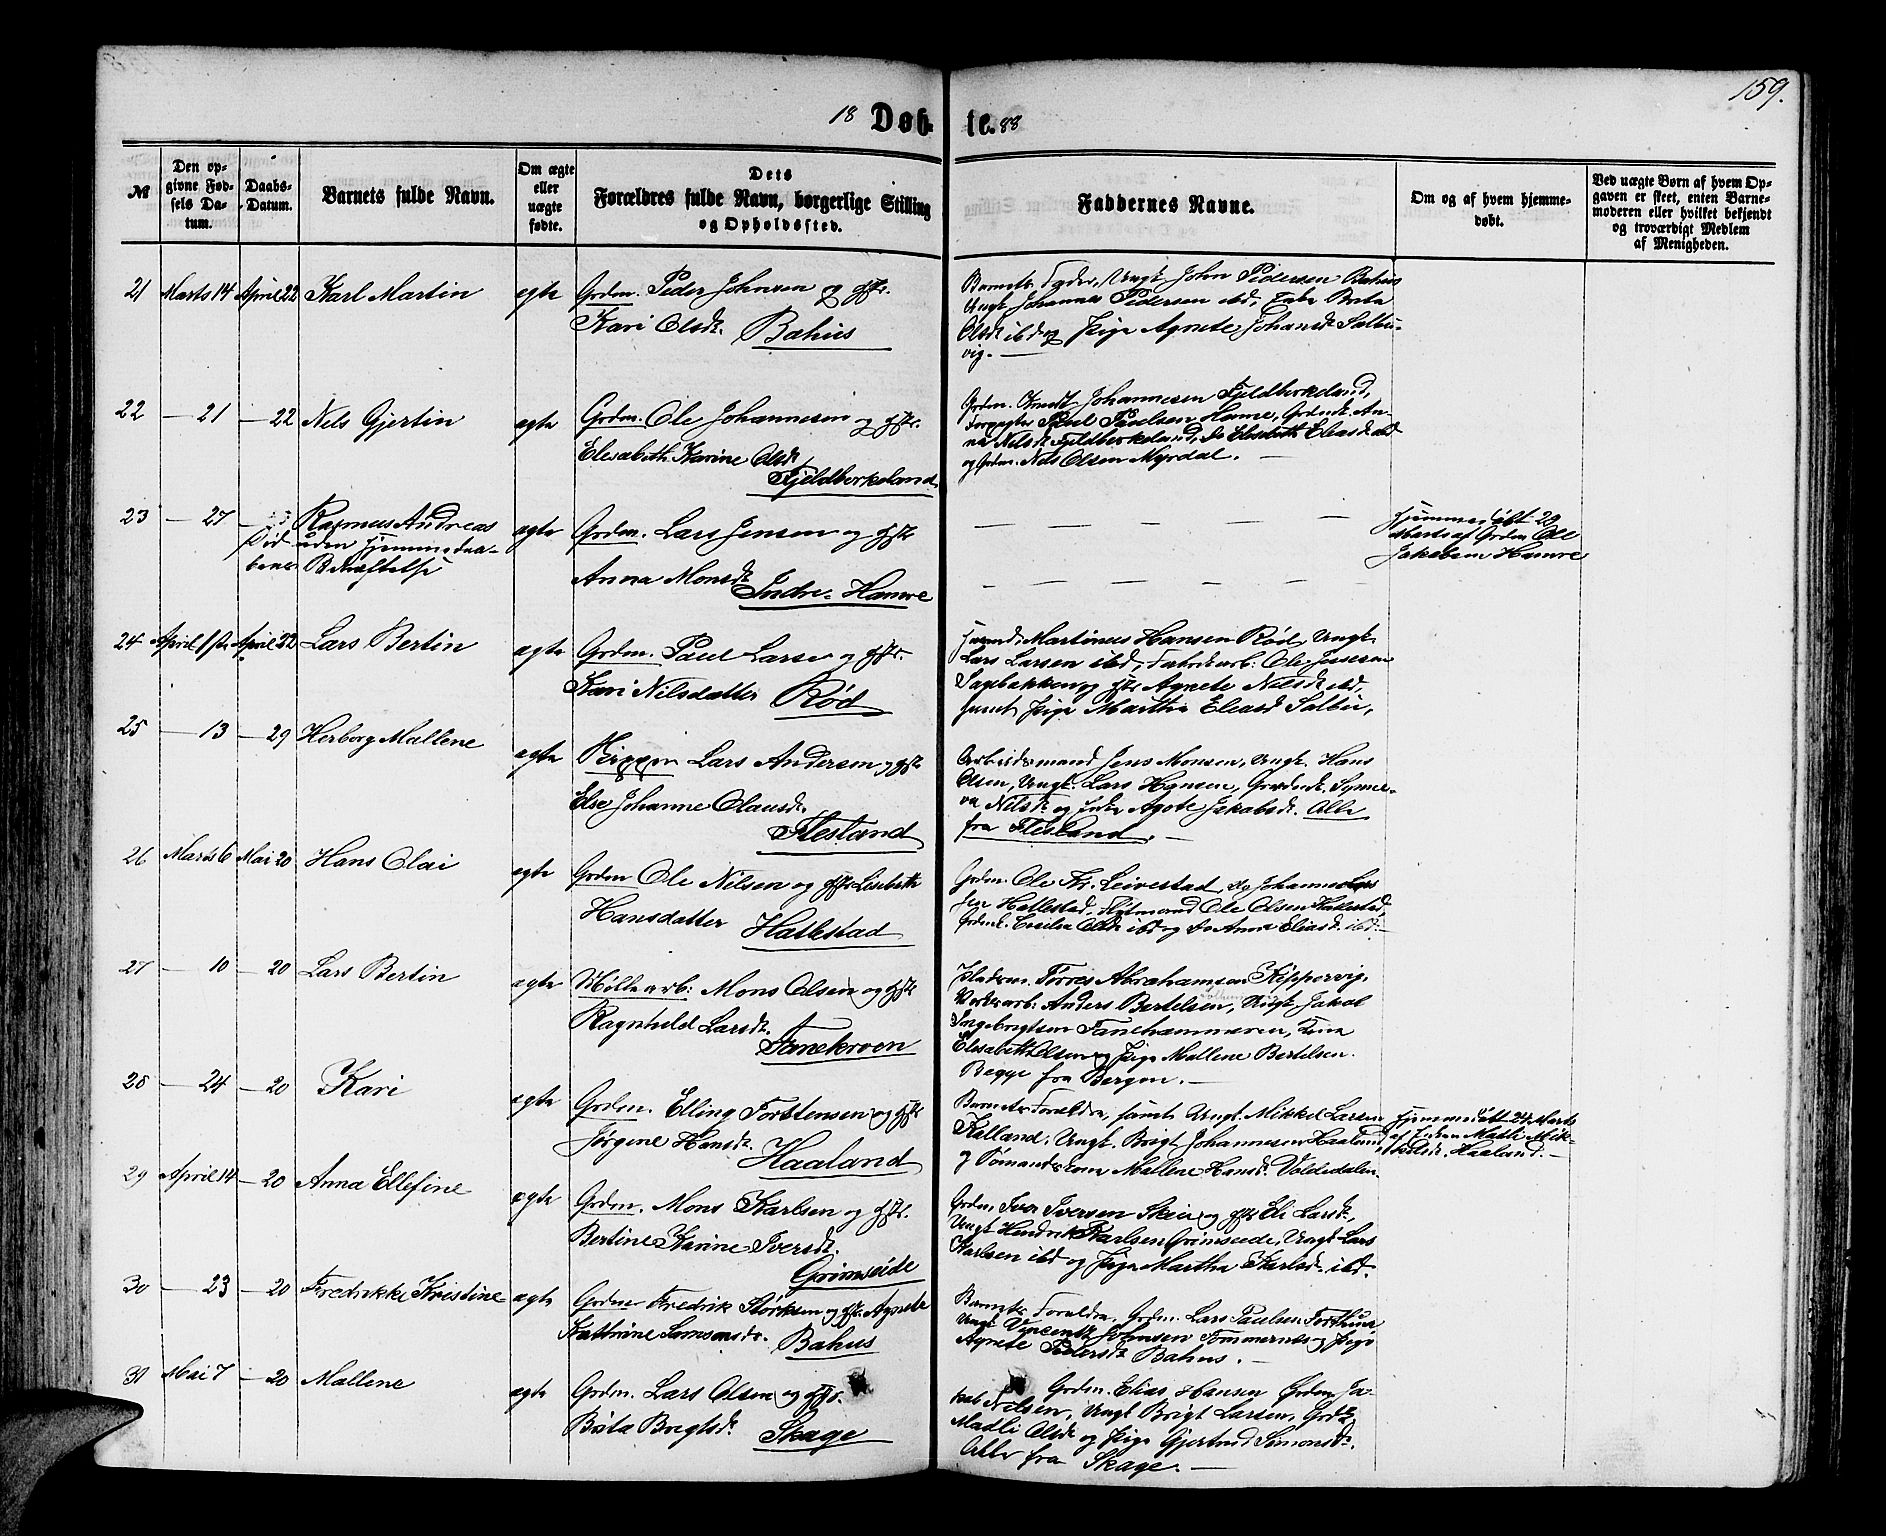 159.
18 Døb- te. 88
№
Den opgivne Fødsels Datum.
Daabs-Datum.
Barnets fulde Navn.
Om ægte eller uægte fødte.
Dets Forældres fulde Navn, borgerlige Stilling og Opholdssted.
Faddernes Navne.
Om og af hvem hjemmedøbt.
Ved uægte Børn af hvem Opgaven er skeet, enten Barnemoderen eller hvilket bekjendt og troværdigt Medlem af Menigheden.
21 Marts 14 April 22 Karl Martin egte Grdm. Peder Johnsen og Hstr.
Kari Olsdt. Bahus
Barnets Fader, Ungk. John Pedersen Bahus
Ungk. Johannes Pedersen ibd, Brita
Olsdt ibd og Pige Agnete Johansdt Salbu-
vig.—
22 — 21 — 22 Nels Gjertin egte Grdm. Ole Johannesen og Hstr.
Elesabeth Karine Olsdt
Fjeldberkeland
Grdm. Johannesen Fjeldberkeland,
Poul Poulsen Hamre, An-
na Nelsdt Fjeldberkeland, Do Elisabeth Eliasdt ibd
og Grdm. Nels Olsen Myrdal.—
23 — 27 — Rasmus Andreas egte Grdm. Lars Jensen og Hstr
Død uden Hjemmedaa-
bens Bekræftelse
Anna Monsdt Indre-Hamre
— — — — —
— — — — —
Hjemmedøbt 29
Marts af Grdm Ole
Jakobsen Hamre
24 April 1ste April 22 Lars Bertin egte Grdm. Paul Larse og Hstr.
Kari Nilsdatter Rød
Martinus Hansen Rød, Ungk.
Lars Larsen ibd, Ole Jossesen
Sagebakken og Hstr Agnete Nelsdt ibd,
samt Pige Martha Eleasdt Salbu,
25 — 13 — 29 Herborg Mallene egte Lars Andersen og Hstr
Else Johanne Olausdt.
Flesland
Arbeidsmand Jens Monsen, Ungk. Hans
Olsen, Ungk. Lars Hansen, Synne-
va Nilsdt og Agote Jakobsdt. Alle
fra Flesland.—
26 Marts 6 Mai 20 Hans Olai egte Grdm Ole Nilsen og Hstr Lisebeth
Hansdatter Hatlestad
Grdm. Ole Leivestad, Do Johannes Lars
sen Hatlestad, Ole Olsen Hatlestad,
Cecilia Olsdt ibd og Do Anna Eliasdt. ibd.—
27 — 10 — 20 Lars Bertin egte Møllearb: Mons Olsen og Hstr
Ragnhild Larsdt.
Fanekroen
Pladsm. Torres Abrahamsen Kippervig,
Anders Bertelsen, Ungk. Jakob
Ingebrigtsen Fanehammeren, Kone
Elisabeth Olsen og Pige Mallene Bertelsen.
Begge fra Bergen.—
28 — 24 — 20 Kari egte Grdm. Elling Torstensen og Hstr
Jørgine Hansdt. Haaland
Barnets Forældre, samt Ungk. Mikkel Larsen
Kalland, Ungk. Brigt Johannesen Haaland,
og Kone Mallene Hansdt. Voldedalen.
Hjemmedøbt 24 Marts
af Enken Madli Mik-
kelsdt. Haaland.—
29 April 14 — 20 Anna Ellefine egte Grdm. Mons Karlsen og Hstr.
Bertine Karine Iversdt.
Grimseide
Grdm. Iver Iversen Skeie og Hstr Eli Larsdt,
Ungk. Hendrik Karlsen Grimseide, Ungk Lars
Karlsen ibd og Pige Martha Karlsdt. ibd.
30 — 23 — 20 Fredrikke Kristine egte Grdm Fredrik Størksen og Hstr. Agnete
Kathrine Samsonsdr. Bahus
Barnets Forældre, Grdm. Lars Paulsen Forthun
Ungk Vincents Johnsen Tommernes og Pige
Agnete Pedersdt Bahus.—
31 Mai 7 — 20 Mallene egte Grdm. Lars Olsen og Hstr.
Brita Brigtsdt. Skage
Grdm. Elias Hansen Grdm. Ja-
kob Nilsen, Ungk Brigt Larsen,
Madli Olsdt og Pige Gjertrud Simonsdt.
Alle fra Skage.—